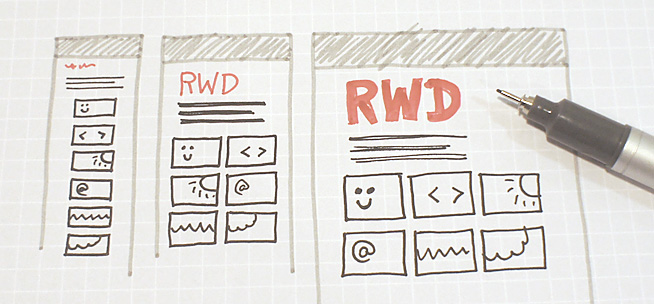 < >
@
RWD
< >
@
RWD
< >
@